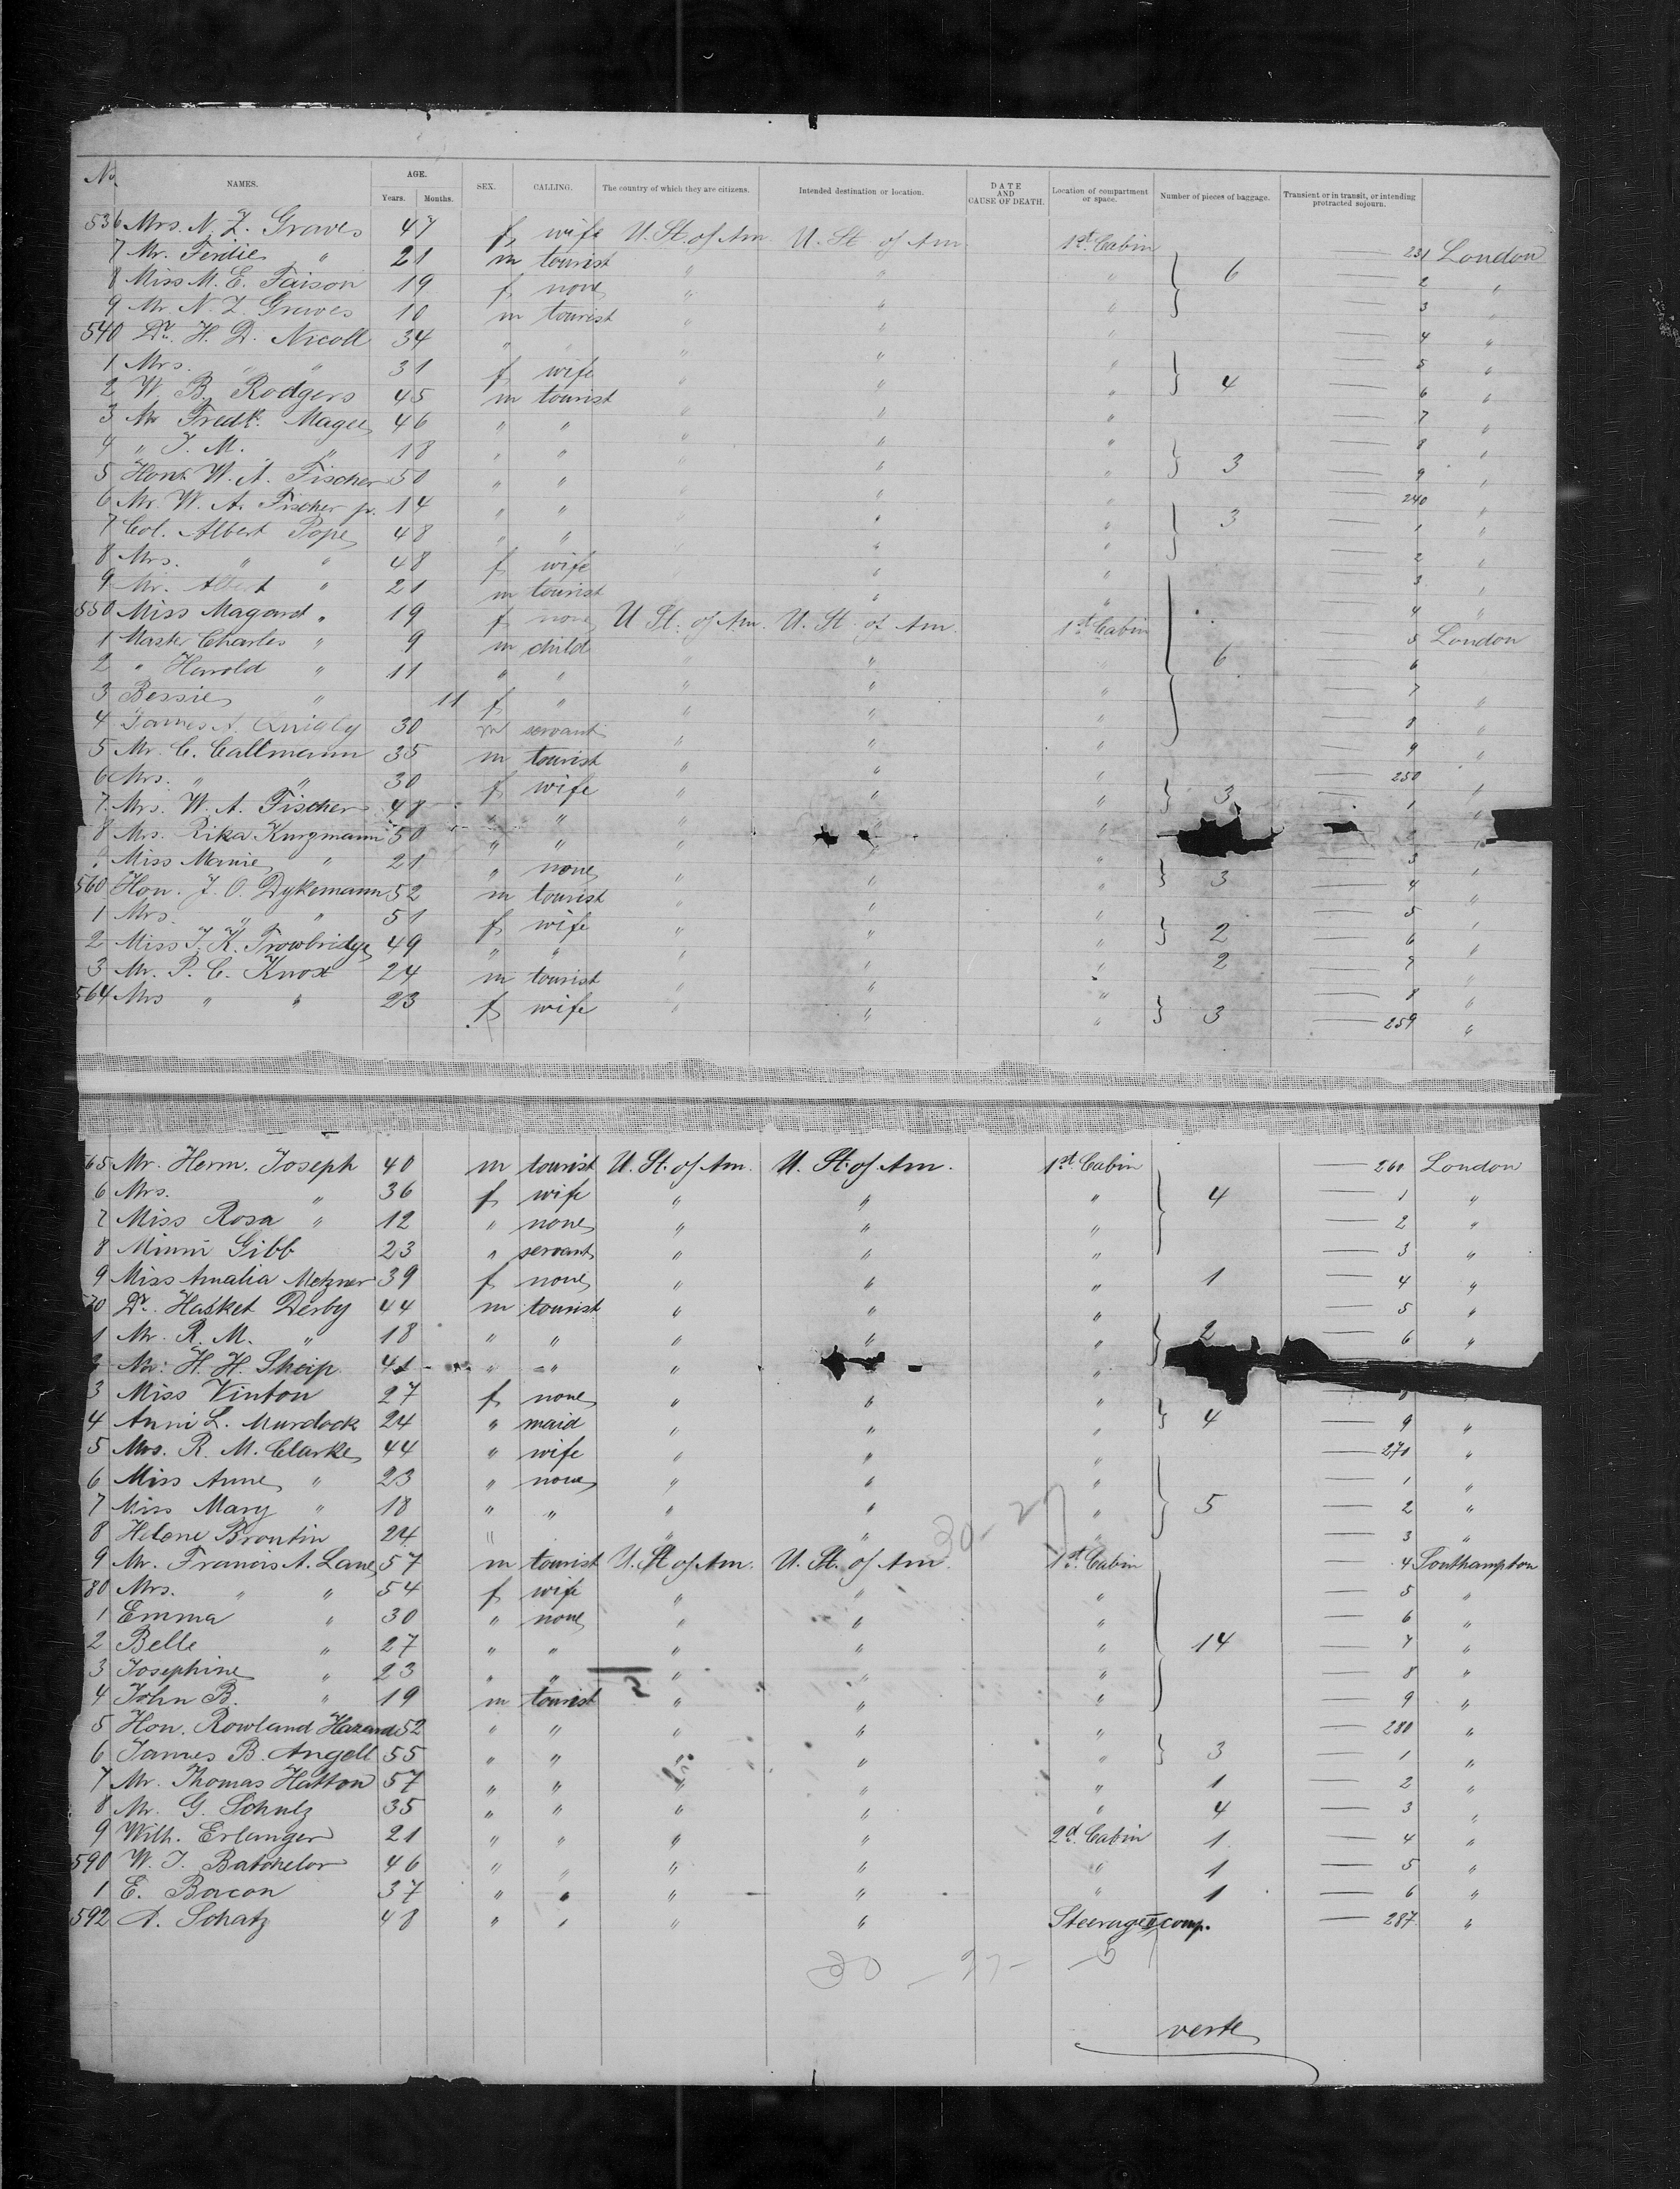 No. NAMES. AGE. Years. Months. SEX. CALLING. The country of which they are citizens. Intended destination or location. DATE AND CAUSE OF DEATH. Location of compartment or space. Number of pieces of baggage. Transient or in transit, or intending protracted sojourn.
536 Mrs. N. Z. Graves 47 f wife U. St. of Am. U. St. of Am. 1st Cabin 231 London
7 Mr. Ferdie " 21 m tourist " " " 6 2 "
8 Miss M. E. Faison 19 f none " " " 3 "
9 Mr. N. Z. Graves 10 m tourist " " " 4 "
540 Dr. H. D. Nicoll 34 " " " " " 5 "
1 Mrs. " " 31 f wife " " " 4 6 "
2 W. B. Rodgers 45 m tourist " " " 7 "
3 Mr Fredk. Magee 46 " " " " " 8 "
4 " J. M. " 18 " " " " " 3 9 "
5 Hon. W. A. Fischer 50 " " " " " 240 "
6 Mr. W. A. Fischer jr. 14 " " " " " 3 1 "
7 Col. Albert Pope 48 " " " " " 2 "
8 Mrs. " " 48 f wife " " " 3 "
9 Mr. Albert " 21 m tourist " " " 4 "
550 Miss Magaret " 19 f none U. St. of Am. U. St. of Am. 1st Cabin 5 London
1 Mast. Charles " 9 m child " " " 6 6 "
2 " Harold " 11 " " " " " 7 "
3 Bessie " 11 f " " " " 8 "
4 James A. 30 m servant " " " 9 "
5 Mr. C. Callmann 35 m tourist " " " 250 "
6 Mrs. " " 30 f wife " " " 3 1 "
7 Mrs. W. A. Fischer 48 " " " " "
8 Mrs. Rika Kurzmann 50 " " " " " 3 "
Miss Mamie " 21 " none " " " 3 4 "
560 Hon. J. O. Dykemann 52 m tourist " " " 5 "
1 Mrs. " " 51 f wife " " " 2 6 "
2 Miss J. K. Trowbridge 49 " " " " " 2 7 "
3 Mr. P. C. Knox 24 m tourist " " " 8 "
564 Mrs " " 23 f wife " " " 3 259 "
565 Mr. Herm. Joseph 40 m tourist U. St. of Am. U. St. of Am. 1st Cabin 260 London
6 Mrs. " 36 f wife " " " 4 1 "
7 Miss Rosa " 12 " none " " " 2 "
8 Minni Gibb 23 " servant " " " 3 "
9 Miss Amalia Metzner 39 f none " " " 1 4 "
70 Dr. Hasket Derby 44 m tourist " " " 5 "
1 Mr. R. M. " 18 " " " " " 2 6 "
2 Mr. H. H. Sheip 41 " " " "
3 Miss Vinton 27 f none " " " 8
4 Anni L. Murdock 24 " maid " " " 4 9 "
5 Mrs. R. M. Clarke 44 " wife " " " 270 "
6 Miss Anne " 23 " none " " " 1 "
7 Miss Mary " 18 " " " " " 5 2 "
8 Helene Brontin 24 " " " " 3 "
9 Mr. Francis A. Lane 57 m tourist U. St. of Am. U. St. of Am. 1st Cabin 4 Southampton
80 Mrs. " " 54 f wife " " " 5 "
1 Emma " 30 " none " " " 6 "
2 Belle " 27 " " " " " 14 7 "
3 Josephine " 23 " " " " " 8 "
4 John B. " 19 m tourist " " " 9 "
5 Hon. Rowland Hazard 52 " " " " " 280 "
6 James B. Angell 55 " " " " " 3 1 "
7 Mr. Thomas Hatton 57 " " " " " 1 2 "
8 Mr. G. Schulz 35 " " " " " 4 3 "
9 Wilh. Erlanger 21 " " " " 2d Cabin 1 4 "
590 W. J. Batchelor 46 " " " " " 1 5 "
1 E. Bacon 37 " " " " " 1 6 "
592 A. Schatz 48 " " " " Steerage II comp. 287 "
30 - 27 - 5
verte